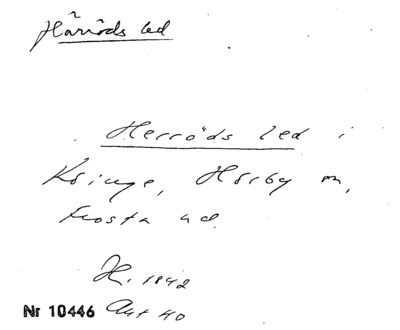 Härröds led
Herröds led i
Kringe, Hörby sn,
Frosta hd.
H. 1842
Nr 10446 Akt 40